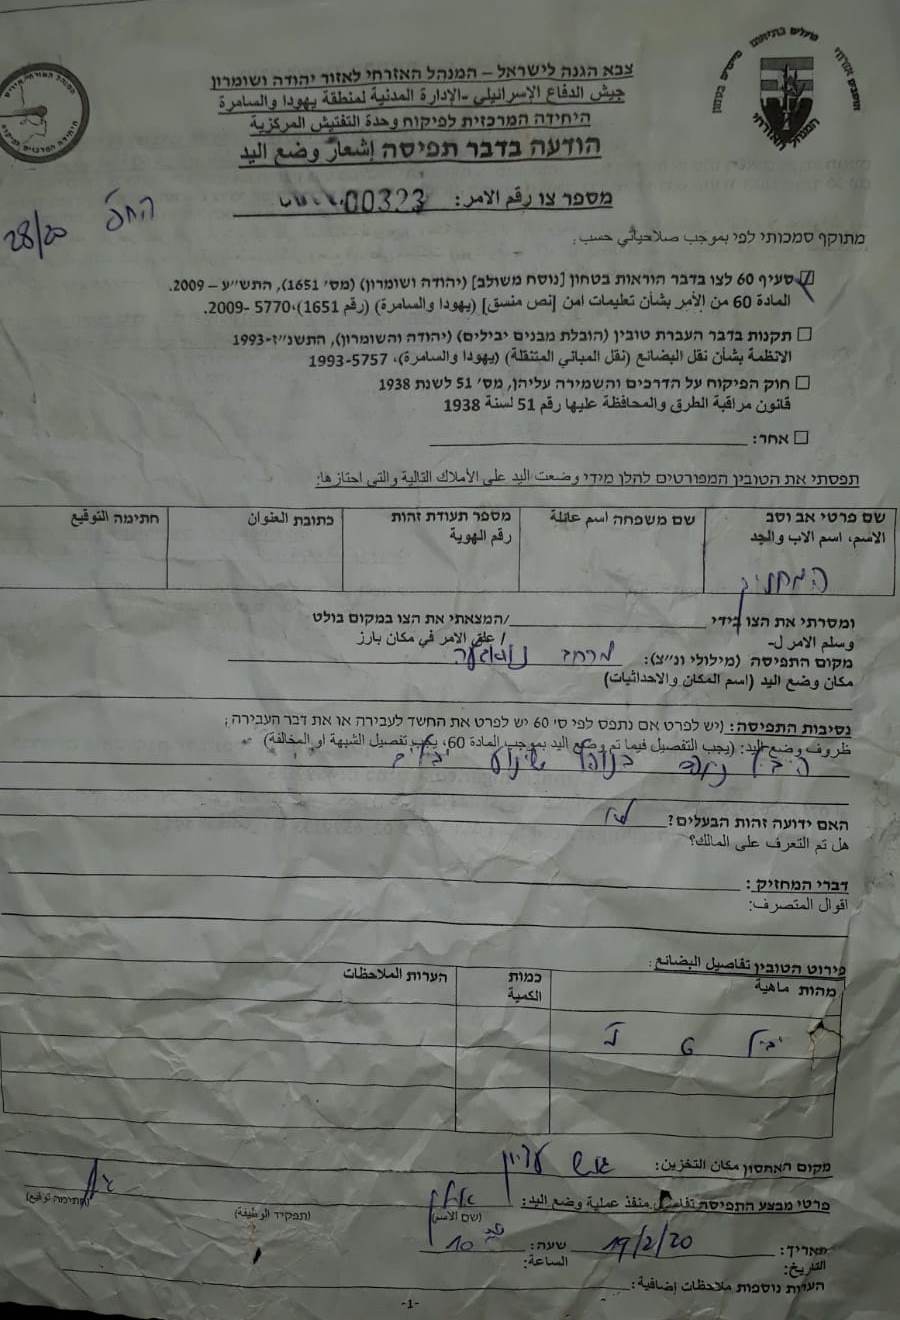 צבא הגנה לישראל – המנהל האזרחי לאזור יהודה ושומרון
جيش الدفاع الإسرائيلي -الإدارة المدنية لمنطقة يهودا والسامرة
היחידה המרכזית לפיקוח وحدة التفتيش المركزية
הודעה בדבר תפיסה إشعار وضع اليد
מספר צו رقم الامر: 00323
28/20
מתוקף סמכותי לפי بموجب صلاحياتي حسب:
סעיף 60 לצו בדבר הוראות בטחון [נוסח משולב] (יהודה ושומרון) (מס' 1651), התש"ע – 2009.
المادة 60 من الأمر بشأن تعليمات امن [نص منسق] (يهودا والسامرة) (رقم 1651)، 5770 -2009.
☐ תקנות בדבר העברת טובין (הובלת מבנים יבילים) (יהודה והשומרון), התשנ"ז-1993
الانظمة بشأن نقل البضائع (نقل المباني المتنقلة) (يهودا والسامرة)، 5757-1993
☐ חוק הפיקוח על הדרכים והשמירה עליהן, מס' 51 לשנת 1938
قانون مراقبة الطرق والمحافظة عليها رقم 51 لسنة 1938
☐ אחר:
תפסתי את הטובין המפורטים להלן מידי وضعت اليد على الأملاك التالية والتي احتازها:
שם פרטי אב וסב שם משפחה اسم عائلة מספר תעודת זהות כתובת العنوان חתימה التوقيع
الاسم، اسم الاب والجد رقم الهوية
המחזיק
ומסרתי את הצו בידי /המצאתי את הצו במקום בולט
وسلم الامر ل- / علق الامر في مكان بارز
מקום התפיסה (מילולי ונ"צ): מרחב
مكان وضع اليد (اسم المكان والاحداثيات)
נסיבות התפיסה: (יש לפרט אם נתפס לפי ס' 60 יש לפרט את החשד לעבירה או את דבר העבירה;
ظروف وضع اليد: (يجب التفصيل فيما تم وضع اليد بموجب المادة 60، يجب تفصيل الشبهة او المخالفة)
האם ידועה זהות הבעלים? לא
هل تم التعرف على المالك؟
דברי המחזיק:
اقوال المتصرف:
פירוט הטובין تفاصيل البضائع:
מהות ماهية כמות הערות الملاحظات
الكمية
מקום האחסון مكان التخزين: גוש עציון
פרטי מבצע התפיסה تفاصيل منفذ عملية وضع اليد:
(שם الاسم) (תפקיד الوظيفة) (חתימה توقيع)
תאריך: 19/2/20 שעה: 10
التاريخ: الساعة:
הערות נוספות ملاحظات إضافية:
-1-